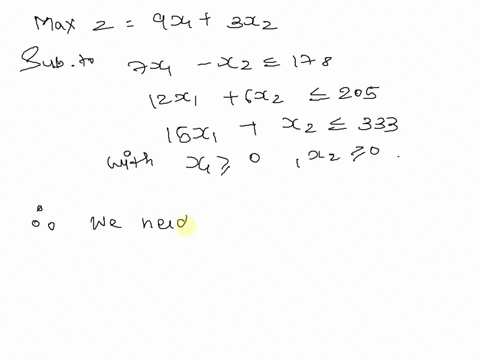 Max Z = 9x1 + 3x2
Sub. to 7x1 - x2 ≤ 178
12x1 + 6x2 ≤ 205
15x1 + x2 ≤ 333
with x1 ≥ 0, x2 ≥ 0.
∴ We need